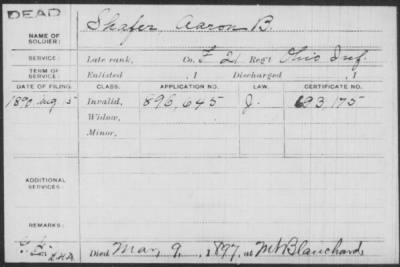 DEAD
NAME OF SOLDIER: Shafer, Aaron B.
SERVICE: Late rank, Co. F 21 Reg't Ohio Inf.
TERM OF SERVICE: Enlisted , 1 Discharged , 1
DATE OF FILING. CLASS. APPLICATION NO. LAW. CERTIFICATE NO.
1890 Aug 5 Invalid, 896,645 J. 683,175
Widow,
Minor,
ADDITIONAL SERVICES:
REMARKS:
Died May 9, 1897, at Mt Blanchard,